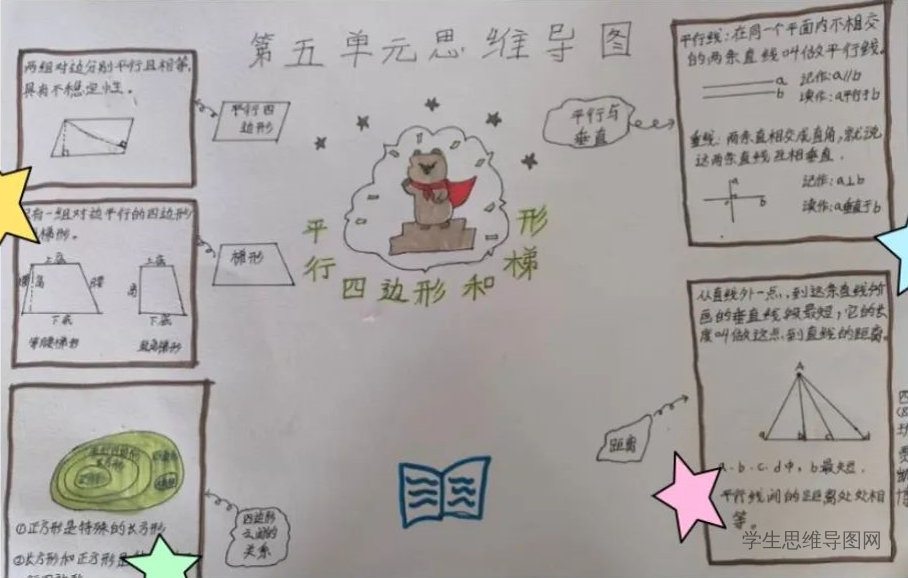 第五单元思维导图
两组对边分别平行且相等,
具有不稳定性。
平行四
边形
有一组对边平行的四边形
梯形。
上底
高
腰
下底
等腰梯形
上底
高
下底
直角梯形
梯形
平行四边形和梯形
平行与
垂直
平行线:在同一个平面内不相交
的两条直线叫做平行线。
a
b
记作:a//b
读作:a平行于b
垂线:两条直相交成直角,就说
这两条直线互相垂直。
a
b
记作:a⊥b
读作:a垂直于b
从直线外一点,到这条直线所
画的垂直线段最短,它的长
度叫做这点到直线的距离。
A
a
b
c
d
a.b.c.d中,b最短.
平行线间的距离处处相
等。
距离
四边形
之间的
关系
①正方形是特殊的长方形
②长方形和正方形是
学生思维导图网